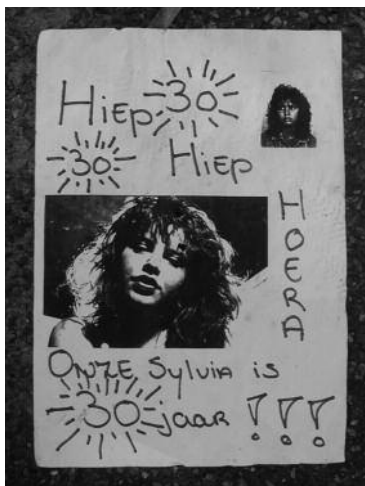 Hiep 30
30 Hiep
HOERA
ONZE Sylvia is
30 jaar !!!